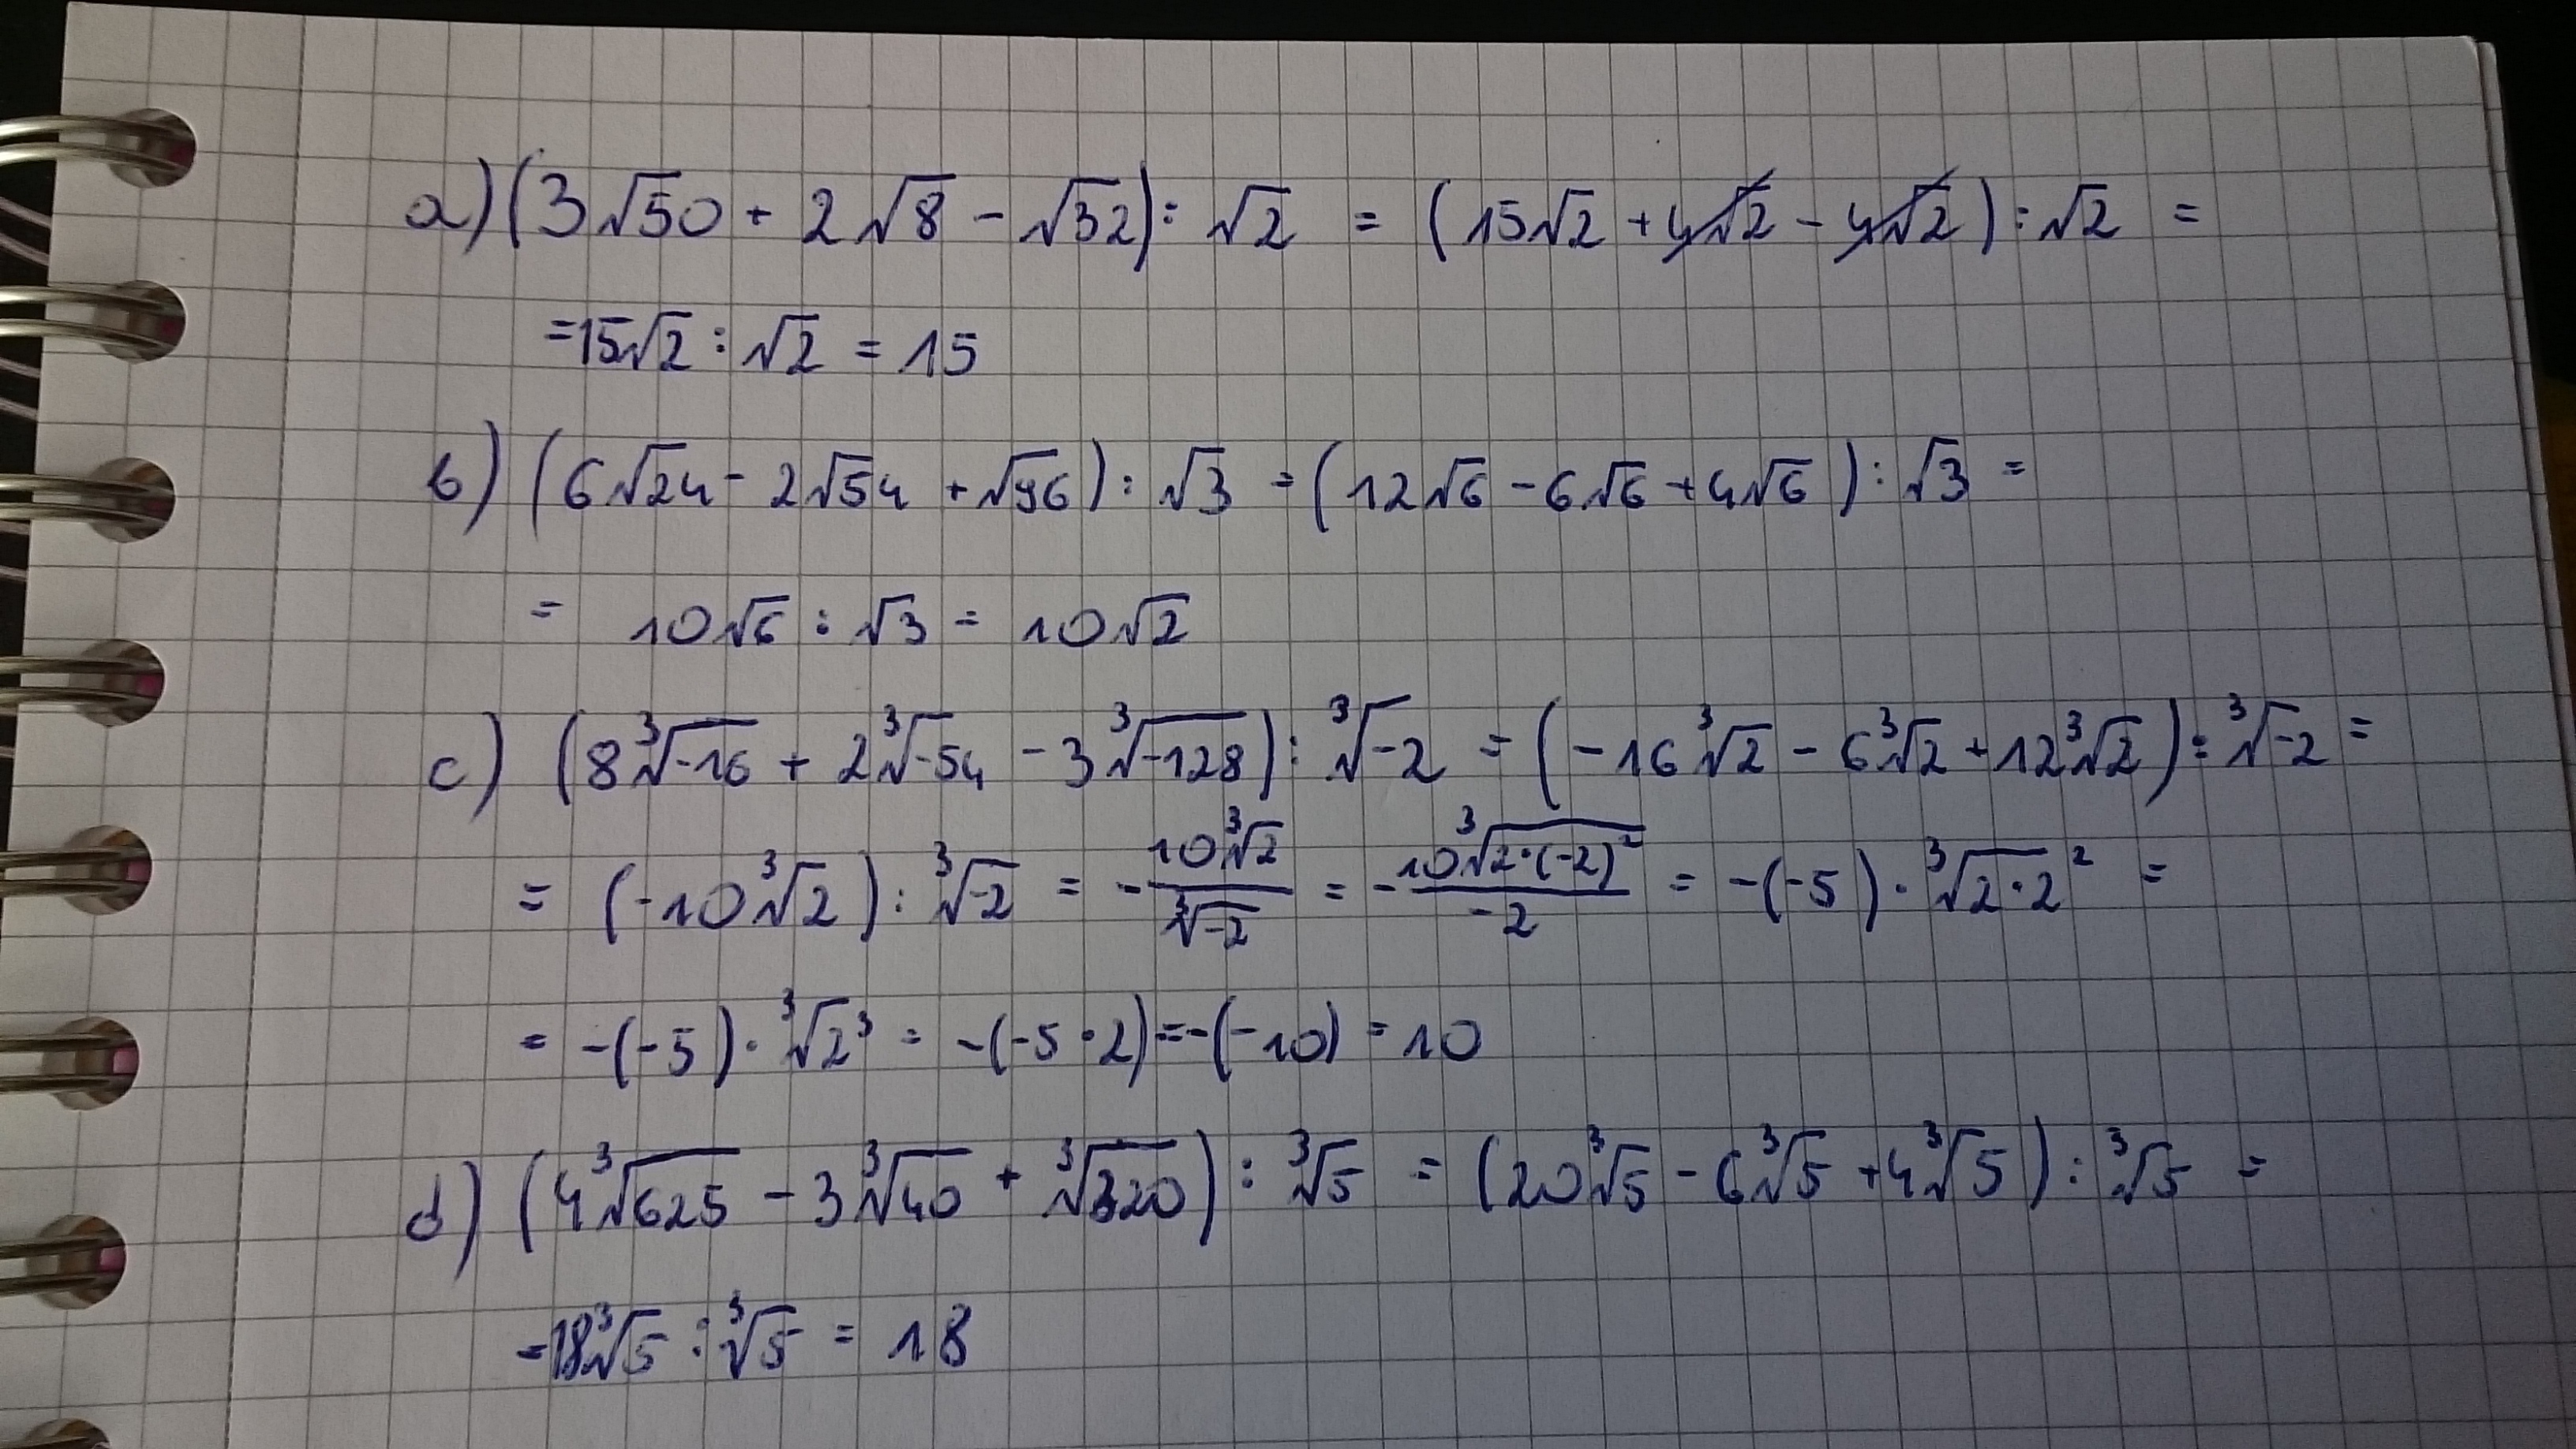 a) (3√50 + 2√8 - √32) : √2 = (15√2 + 4√2 - 4√2) : √2 =
= 15√2 : √2 = 15
b) (6√24 - 2√54 + √96) : √3 = (12√6 - 6√6 + 4√6) : √3 =
= 10√6 : √3 = 10√2
c) (8∛-16 + 2∛-54 - 3∛-128) : ∛-2 = (-16∛2 - 6∛2 + 12∛2) : ∛-2 =
= (-10∛2) : ∛-2 = - 10∛2 / ∛-2 = - 10∛(2·(-2)²) / -2 = -(-5) · ∛(2·2²) =
= -(-5) · ∛2³ = -(-5·2) = -(-10) = 10
d) (4∛625 - 3∛40 + ∛320) : ∛5 = (20∛5 - 6∛5 + 4∛5) : ∛5 =
= 18∛5 : ∛5 = 18